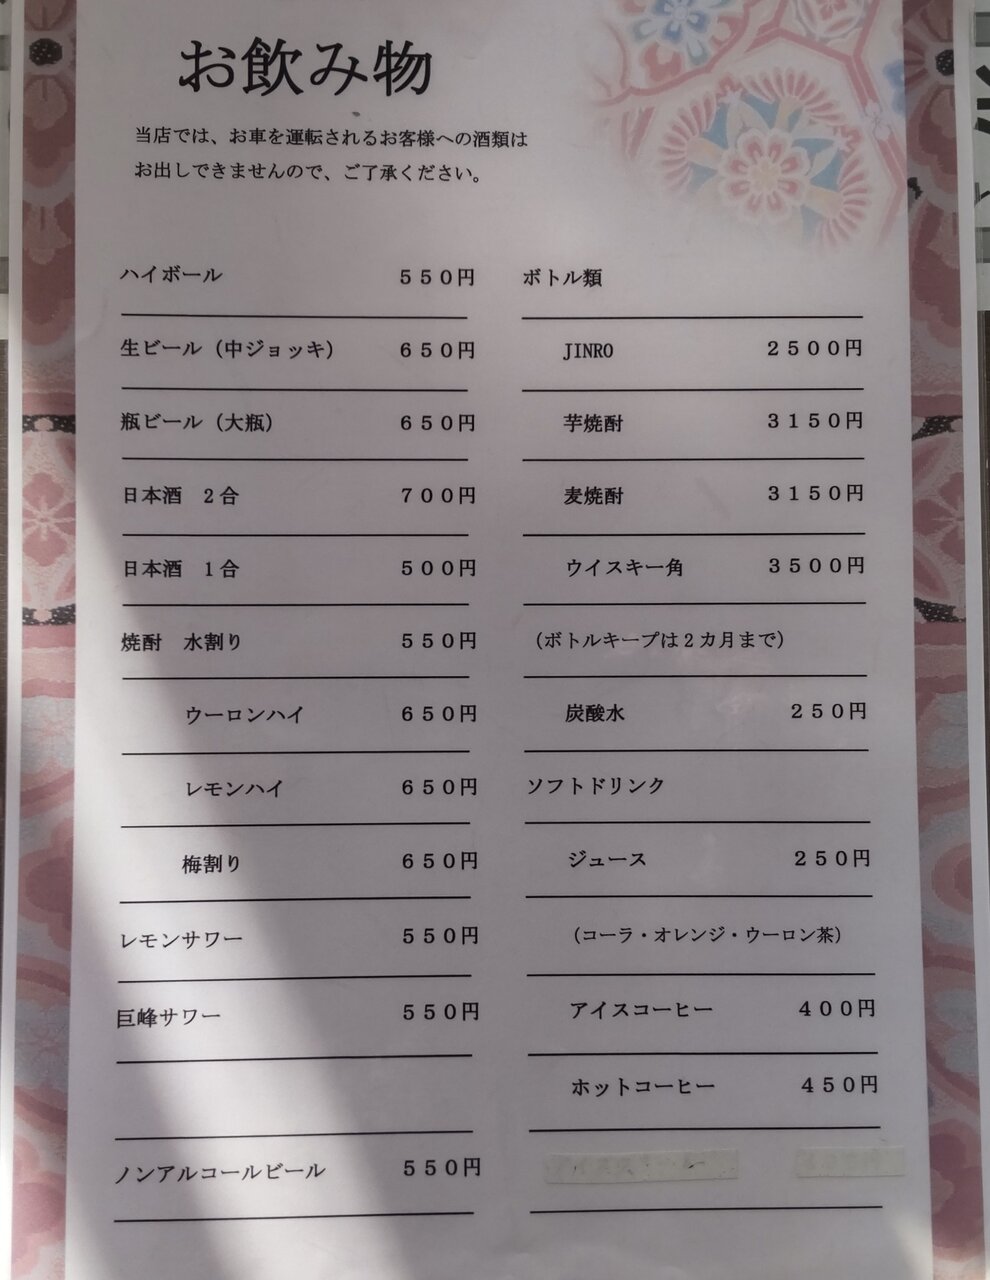 お飲み物
当店では、お車を運転されるお客様への酒類は
お出しできませんので、ご了承ください。
ハイボール 550円
生ビール（中ジョッキ） 650円
瓶ビール（大瓶） 650円
日本酒 2合 700円
日本酒 1合 500円
焼酎 水割り 550円
ウーロンハイ 650円
レモンハイ 650円
梅割り 650円
レモンサワー 550円
巨峰サワー 550円
ノンアルコールビール 550円
ボトル類
JINRO 2500円
芋焼酎 3150円
麦焼酎 3150円
ウイスキー角 3500円
（ボトルキープは2カ月まで）
炭酸水 250円
ソフトドリンク
ジュース 250円
（コーラ・オレンジ・ウーロン茶）
アイスコーヒー 400円
ホットコーヒー 450円